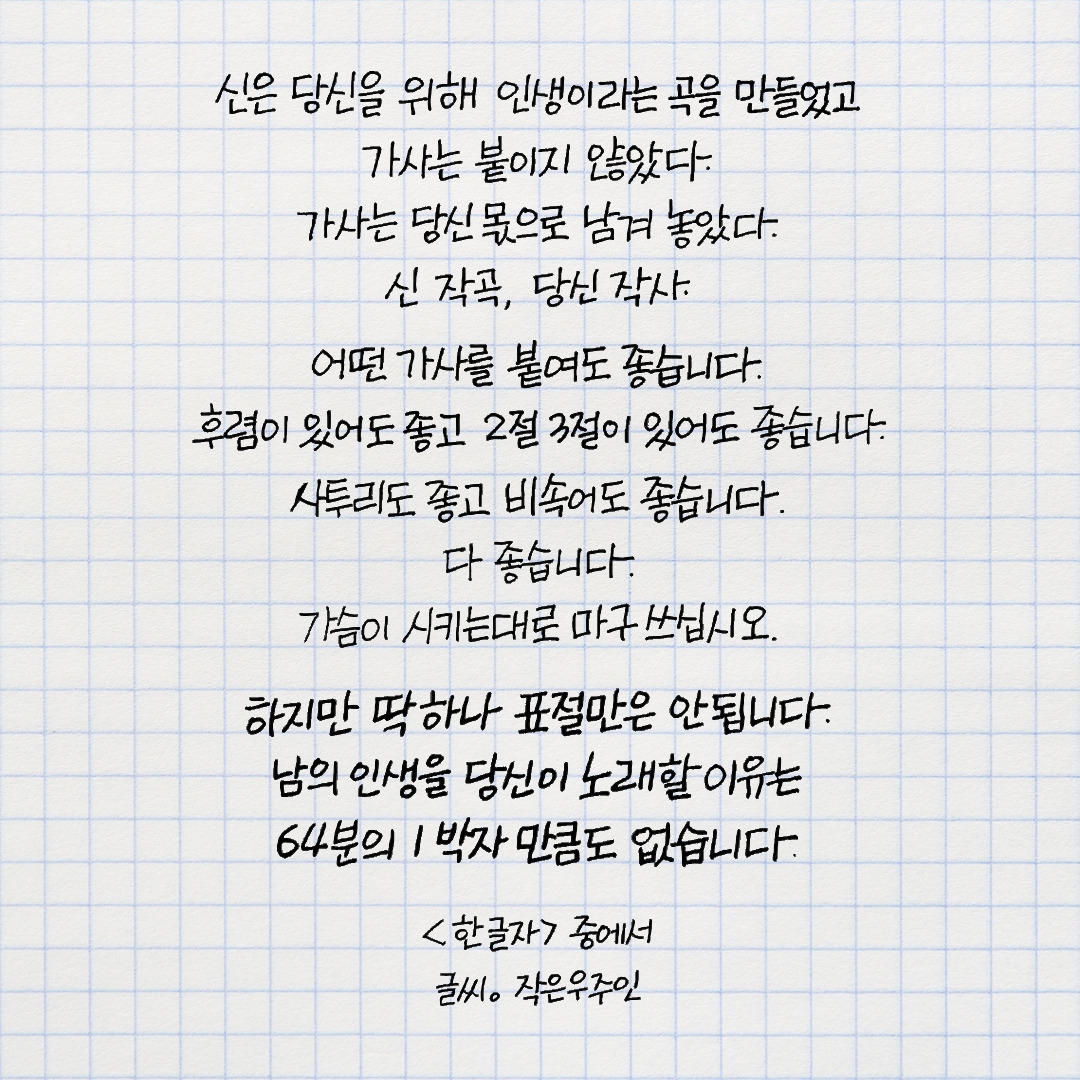 신은 당신을 위해 인생이라는 곡을 만들었고
가사는 붙이지 않았다.
가사는 당신 몫으로 남겨 놓았다.
신 작곡, 당신 작사.
어떤 가사를 붙여도 좋습니다.
후렴이 있어도 좋고 2절 3절이 있어도 좋습니다.
사투리도 좋고 비속어도 좋습니다.
다 좋습니다.
가슴이 시키는대로 마구 쓰십시오.
하지만 딱 하나 표절만은 안됩니다.
남의 인생을 당신이 노래할 이유는
64분의 1 박자 만큼도 없습니다.
<한글자> 중에서
글씨。 작은우주인